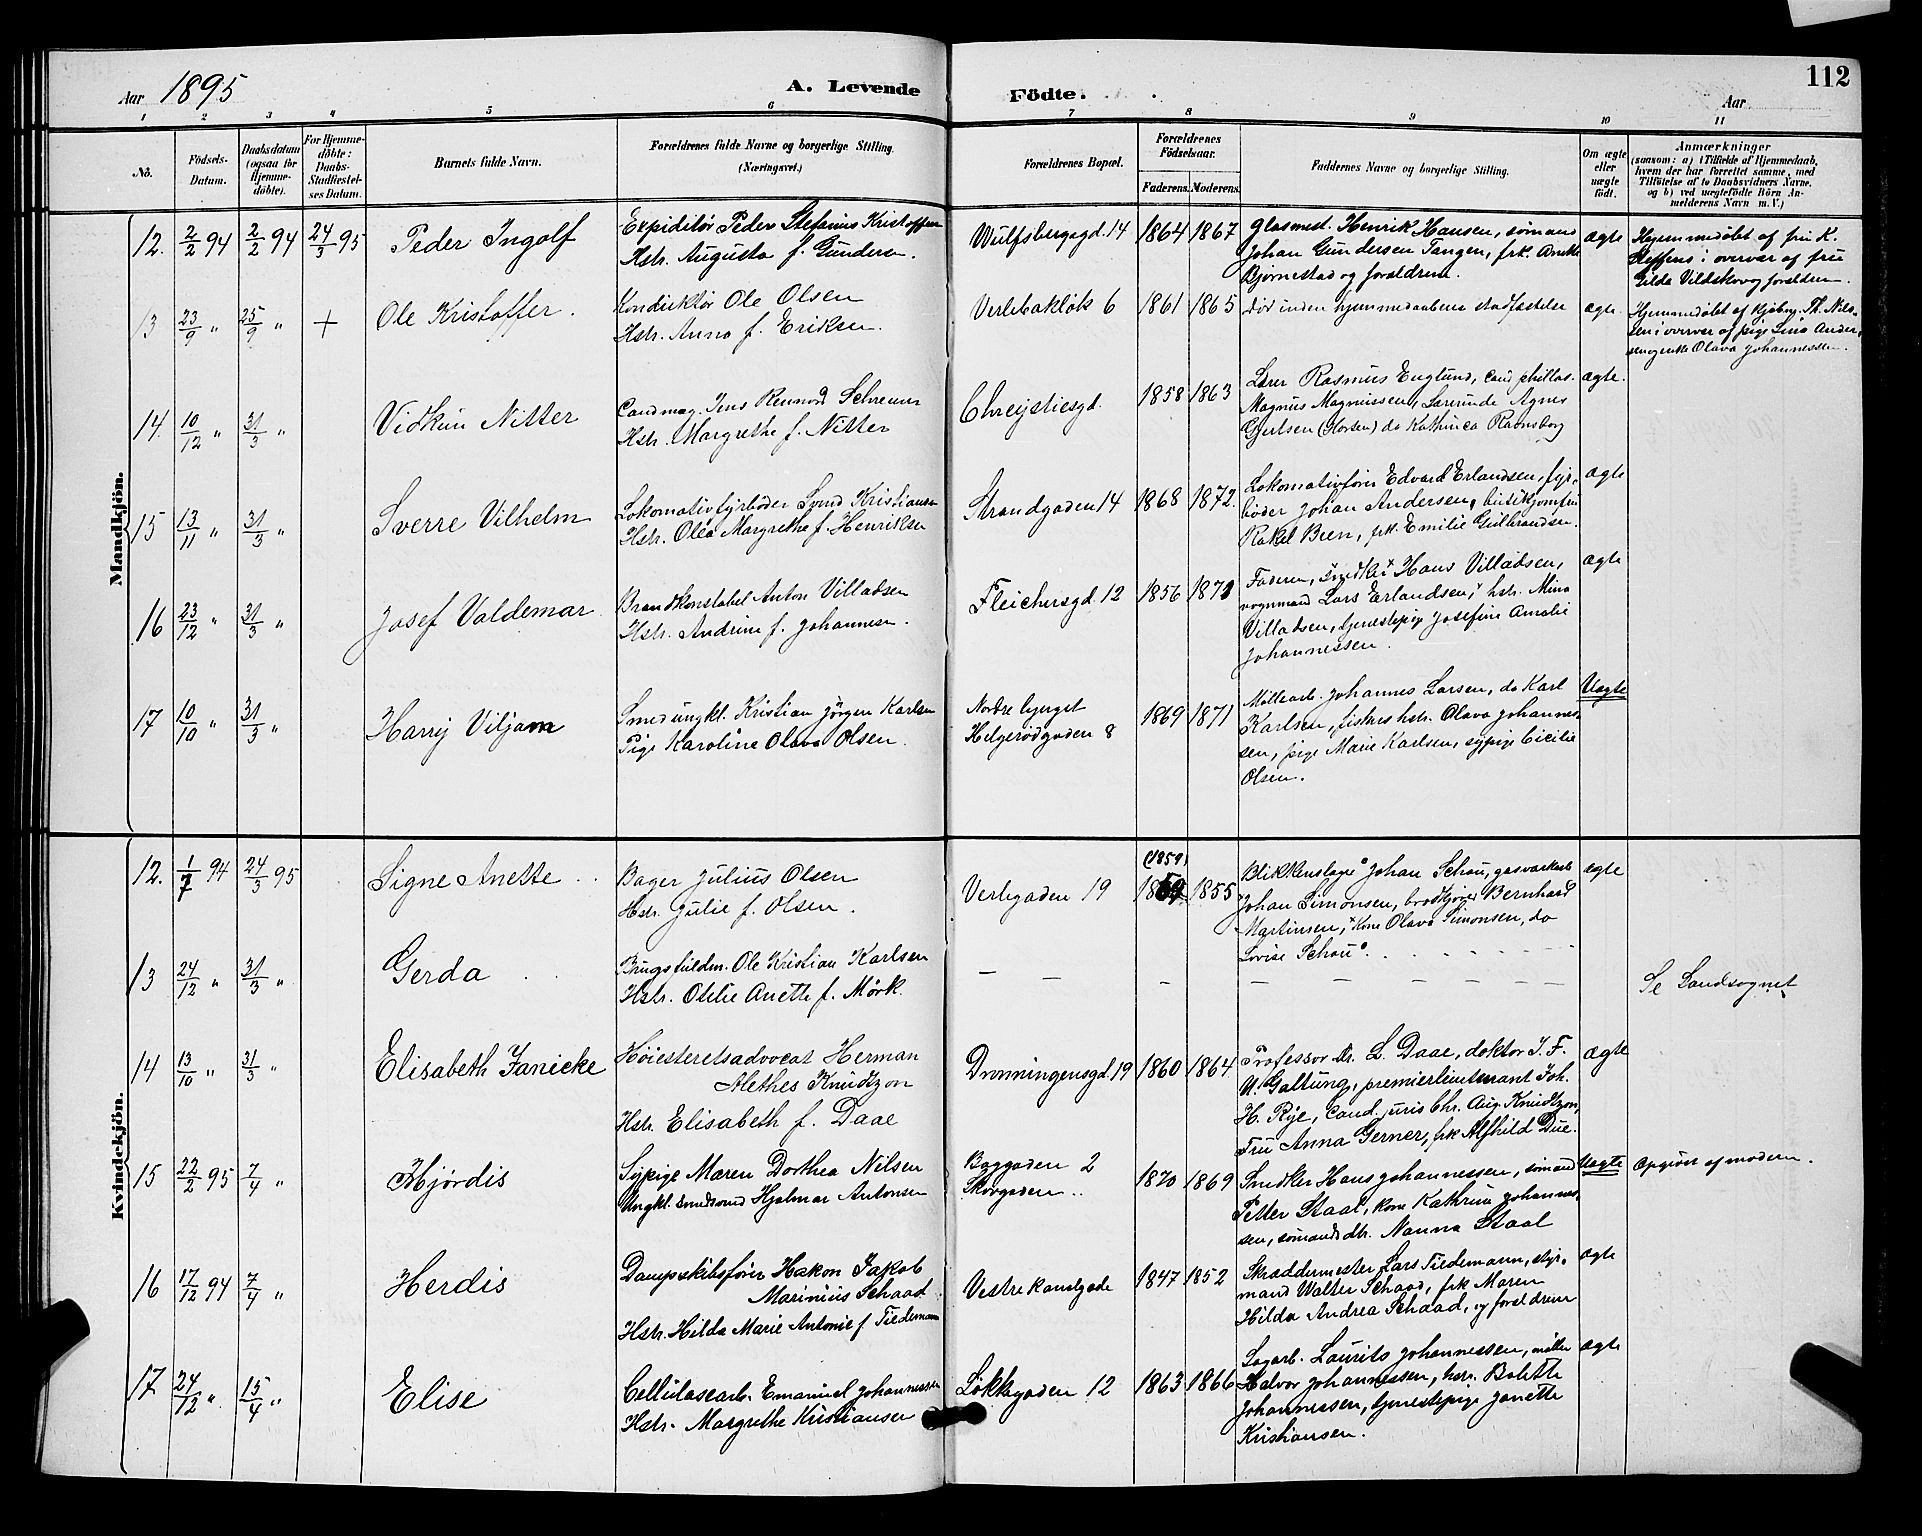 112
Aar 1895
A. Levende Födte.
Aar
1 2 3 4 5 6 7 8 9 10 11
No.
Födsels-Datum.
Daabsdatum (ogsaa for Hjemmedöbte).
For Hjemmedöbte: Daabs-Stadfæstelses Datum.
Barnets fulde Navn.
Forældrenes fulde Navne og borgerlige Stilling.
(Næringsvei.)
Forældrenes Bopæl.
Forældrenes Födselsaar.
Faderens. Moderens.
Faddernes Navne og borgerlige Stilling.
Om ægte eller uægte födt.
Anmærkninger
(saasom: a) i Tilfælde af Hjemmedaab, hvem der har forrettet samme, med Tilföielse af to Daabsvidners Navne, og b) ved uægtefödte Börn Anmelderens Navn m. V.)
Mandkjön.
12. 2/2 94 2/2 94 24/3 95 Peder Ingolf
Expeditör Peder Stefanius Kristoffersen
Hstr. Augusta f. Gundersen.
Wulfsbergsgd. 14 1864 1867
Glasmest. Henrik Hansen, sömand
Johan Gundersen Tangen, frk. Anette
Bjørnestad og forældrene.
ægte
Hjemmedøbt af fru K.
Steffens i overvær af frue
Gilda Vildskov og forældrene.
13 23/9 " 25/9 " + Ole Kristoffer.
Konduktör Ole Olsen
Hstr. Anna f. Eriksen.
Verlebakløk 6 1861 1865
död inden hjemmedaabens stadfæstelse
ægte.
Hjemmedøbt af Kjøbmg. Th. Nilssen i overvær af pige Lina Andersen og enke Olava Johannessen.
14. 10/12 " 31/3 " Vidkun Nitter
Candmag. Jens Rennord Schreiner
Hstr. Margrethe f. Nitter
Chrejstiesgd. 1858 1863
Lærer Rasmus Englund, cand. phillos.
Magnus Magnussen, Lærerinde Agnes
Gjertsen (Horten) do Kathinca Ravnsborg
ægte.
15 13/11 " 31/3 " Sverre Vilhelm
Lokomotivfyrböder Symd Kristiansen
Hstr. Olea Margrethe f. Henriksen
Strandgaden 14 1868 1872.
Lokomotivfører Edvard Erlandsen, fyrböder Johan Andersen, butikjomfru
Rakel Been, frk. Emilie Gulbrandsen.
ægte
16 23/12 " 31/3 " Josef Valdemar
Brandkonstabel Anton Villadsen
Hstr. Andrine f. Johannesen.
Fleichersgd. 12 1856 1871
Faderen, snedker Hans Villadsen,
vognmand Lars Erlandsen, hstr. Mina
Villadsen, tjenestepige Josefine Amalie
Johannessen.
ægte
17 10/10 " 31/3 " Harry Viljam
Smed ungkl. Kristian Jörgen Karlsen
Pige Karoline Olava Olsen.
Nordre bjerget
Helgerödgaden 8
1869 1871
Möllearb. Johannes Larsen, do Karl
Karlsen, fiskers hstr. Olava Johannessen, pige Marie Karlsen, sypige Cicilie
Olsen.
Uægte
Kvindekjön.
12. 1/7 94 24/3 95 Signe Anette
Bager Julius Olsen
Hstr. Julie f. Olsen.
Verlegaden 19 (1859) 1855
Blikkenslager Johan Schou, gasværksarb
Johan Simonsen, brödkjører Bernhard
Martinsen, kone Olava Simonsen, do
Lovise Schou.
ægte
13 24/12 " 31/3 " Gerda
Brugsfuldm. Ole Kristian Karlsen
Hstr. Otilie Anette f. Mörk.
Se Landsognet
14 13/10 " 31/3 " Elisabeth Janicke
Höiesteretsadvocat Herman
Alethes Knudtzon
Hstr. Elisabeth f. Daae
Dronningensgd. 19 1860 1864
Professor Dr. L. Daae, doktor J. F.
N. Galtung, premierlieutenant Joh.
H. Rye, Cand. juris Chr. Aug. Knudtzon,
Fru Anna Gerner, frk Alfhild Due.
ægte
15 22/2 95 7/4 " Hjördis
Sypige Maren Dorthea Nilsen
Ungkl. smedsvend Hjalmar Antonsen
Baggaden 2
Skovgaden ..
1870 1869
Snedker Hans Johannessen, sömand
Petter Staal, kone Kathrine Johannessen, sömandsdtr. Nanna Staal
Uægte
Opgivet af moderen.
16 17/12 94 7/4 " Herdis
Dampskibsförer Hakon Jakob
Marinius Schaad.
Hstr. Hilda Marie Antonie f. Tiedemann
Vestre kanalgade 1847 1852
Skræddermester Lars Tiedemann, styrmand Walter Schaad, frk Maren
Hilda Andrea Schaad, og forældrene
ægte
17 24/12 " 15/4 " Elise
Cellulosearb. Emanuel Johannessen
Hstr. Margrethe Kristiansen
Lökkegaden 12 1863 1866
Sagarb. Laurits Johannessen, möller
Halvor Johannessen, hstr. Bolette
Johannessen, tjenestepige Janette
Kristiansen.
ægte